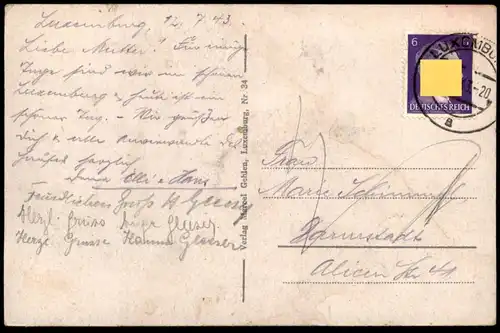 Luxemburg, 12.7.43.
Liebe Mutter! Für einige
Tage sind wir im schönen
Luxemburg & heute ist ein
schöner Tag. - Wir grüßen
Dich & alle
herzlich
Deine Elli & Hans
Freundlichen Gruß H
Herzl. Gruss
Herzl. Grüsse Hanna
Verlag Marcel Gehlen, Luxemburg, Nr 34
6
DEUTSCHES REICH
LUXEMBURG
-20
a
Frau
Marie
Darmstadt
Alicen Str 41